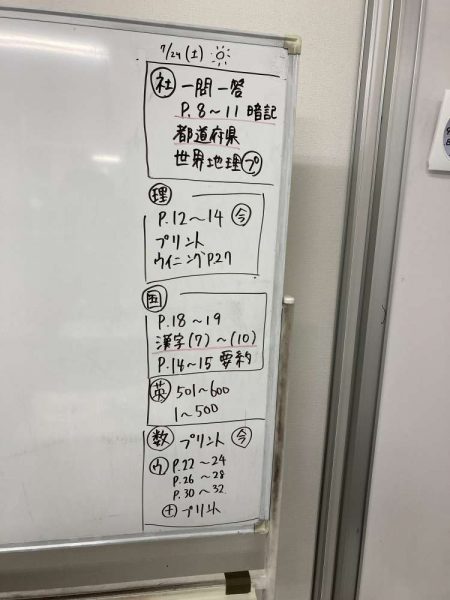 7/24(土)
社 一問一答
P.8～11 暗記
都道府県
世界地理プ
理
P.12～14 今
プリント
ウイニングP.27
国
P.18～19
漢字(7)～(10)
P.14～15 要約
英 501～600
1～500
数 プリント 今
ウ P.22～24
P.26～28
P.30～32
土 プリント